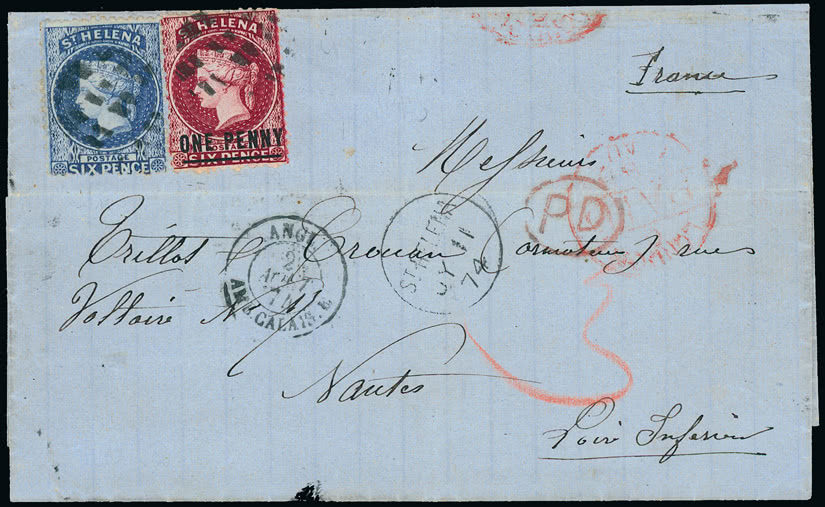 ST HELENA
POSTAGE
SIX PENCE
ST HELENA
ONE PENNY
SIX PENCE
France
Messieurs
PD
ST HELENA
JY 11
74
ANGL.
2
AOUT
74
AMB. CALAIS. E
Trillot & Crouan Armateurs rue
Voltaire No 11
3
Nantes
Loire Inférieure